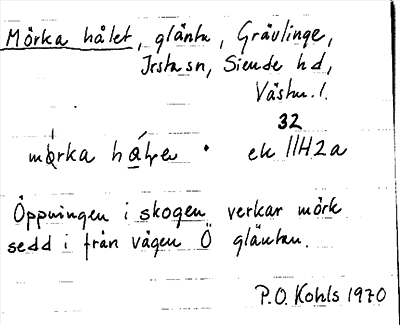 Mörka hålet, glänta, Grävlinge,
Irsta sn, Siende hd,
Västm. l.
32
mörka hålǝn • ek 11H2a
Öppningen i skogen verkar mörk
sedd i från vägen Ö gläntan.
P.O. Kohls 1970